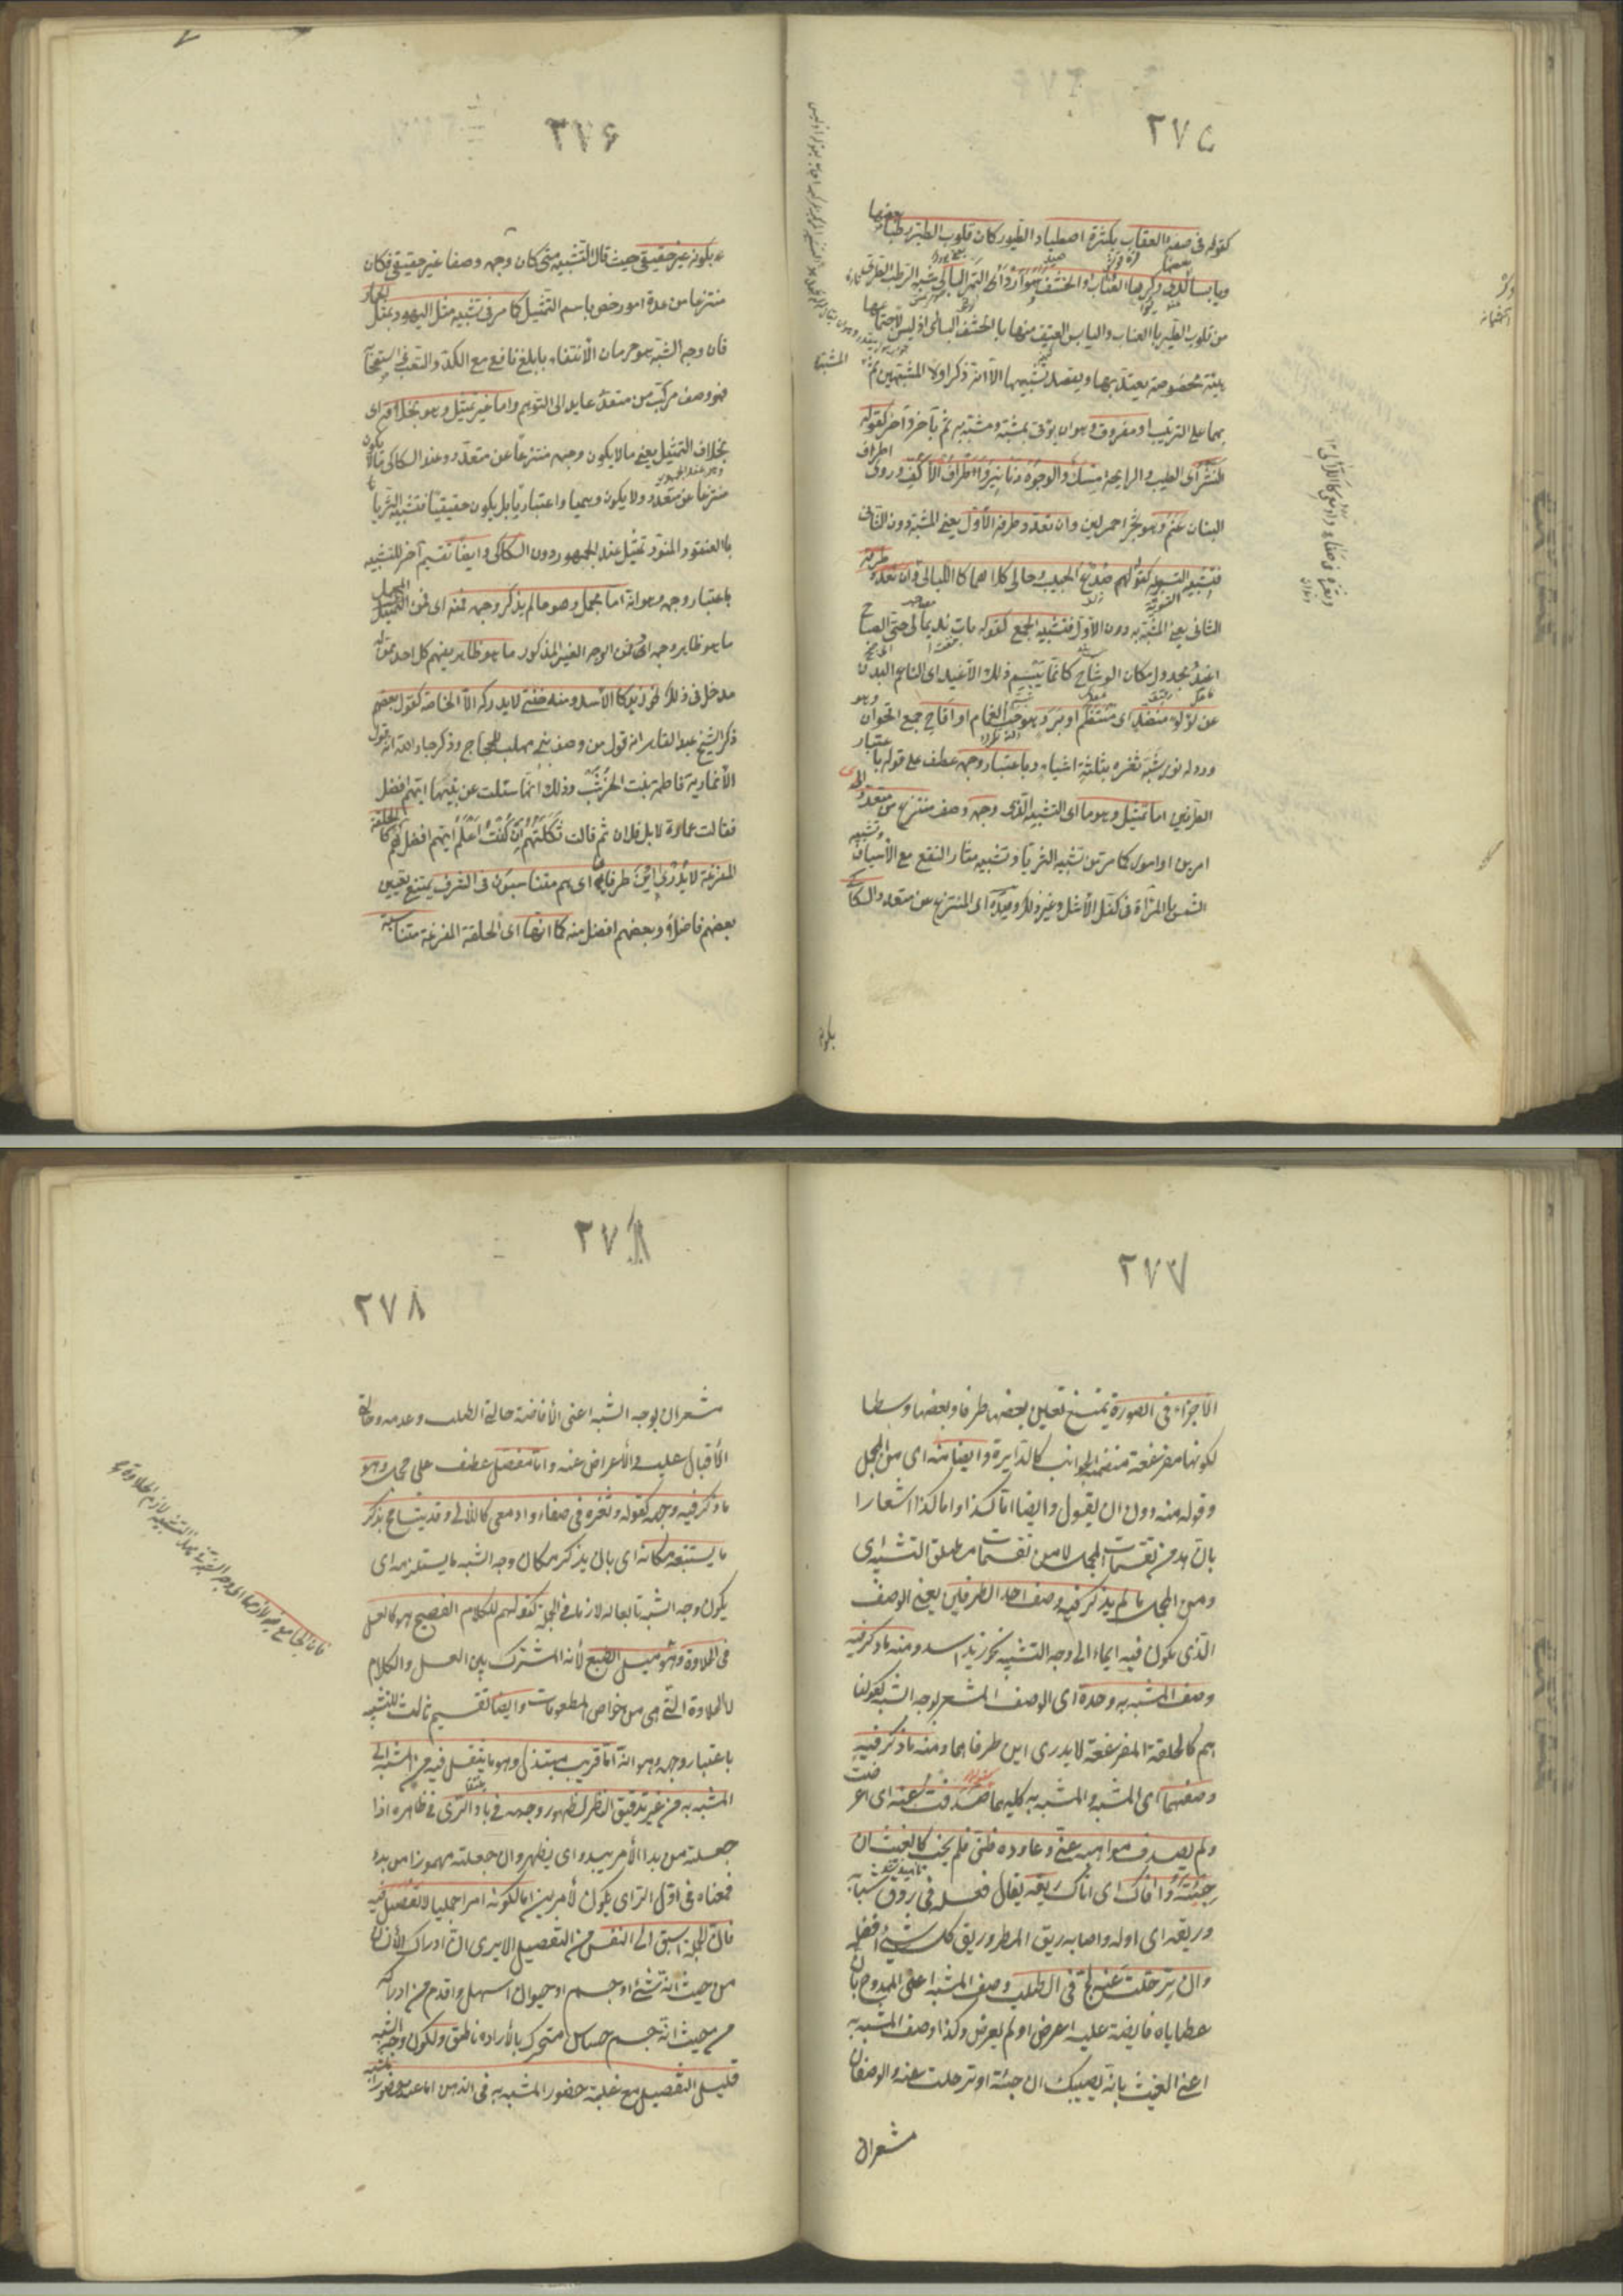 ٢٧٥
كقوله فى صفة العقاب بكثرة اصطياد الطيور كان قلوب الطير رطبا بعضها
ويابسا لدى وكرها العناب والحشف هو اردأ التمر البالى شبه الرطب الطرى
من قلوب الطير بالعناب واليابس العتيق منها بالحشف البالى اذ ليس لاجتماعها
هيئة مخصوصة يعتد بها ويقصد تشبيهها الا انه ذكر اولا المشبهين ثم المشبه
بهما على الترتيب او مفروق وهو ان يؤتى بمشبه ومشبه به ثم بآخر وآخر كقوله
النشر اى الطيب والرايحة مسك والوجوه دنانير واطراف الاكف وروى اطراف
البنان عنم وهو شجر احمر لين وان تعدد طرفه الأول يعنى المشبه دون الثانى
فتشبيه التسوية كقولهم صدغ الحبيب وحالى كلاهما كالليالى وان تعدد طرفه
الثانى يعنى المشبه به دون الأول فتشبيه الجمع كقوله بات نديما لى حتى الصباح
اغيد مجدول مكان الوشاح كانما يبسم ذلك الأغيد اى الناعم البدن
عن لؤلؤ منضد اى منتظم او برد وهو حب الغمام او اقاح جمع اقحوان وهو
ورد له نور شبه ثغره بثلثة اشياء وباعتبار وجهه عطف على قوله باعتبار
الطرفين اما تمثيل وهو ما اى التشبيه الذى وجهه وصف منتزع من متعدد اى
امرين او امور كما مر من تشبيه الثريا وتشبيه مثار النقع مع الأسياف وتشبيه
الشمس بالمرآة فى كف الأشل وغير ذلك وقيده اى المنتزع من متعدد السكاكى
بكونه
٢٧٦
بكونه غير حقيقى حيث قال التشبيه متى كان وجهه وصفا غير حقيقى وكان
منتزعا من عدة امور خص باسم التمثيل كما مر فى تشبيه مثل اليهود بمثل الحمار
فان وجه الشبه هو حرمان الأنتفاع بابلغ نافع مع الكد والتعب فى استصحابه
فهو وصف مركب من متعدد عايد الى التوهم واما غير تمثيل وهو بخلافه اى
بخلاف التمثيل يعنى ما لا يكون وجهه منتزعا من متعدد وعند السكاكى ما لا يكون
منتزعا من متعدد ولا يكون وهميا واعتباريا بل يكون حقيقيا فتشبيه الثريا
بالعنقود المنور تمثيل عند الجمهور دون السكاكى وايضا تقسيم آخر للتشبيه
باعتبار وجهه وهو انه اما مجمل وهو ما لم يذكر وجهه فمنه اى فمن المجمل
ما هو ظاهر وجهه او فمن الوجه الغير المذكور ما هو ظاهر يفهمه كل احد ممن له
مدخل فى ذلك نحو زيد كالأسد ومنه خفى لا يدركه الا الخاصة كقول بعضهم
ذكر الشيخ عبد القاهر انه قول من وصف بنى مهلب للحجاج وذكر جار الله انه قول
الأنمارية فاطمة بنت الخرشب وذلك انها سئلت عن بنيها ايهم افضل
فقالت عمارة لا بل فلان ثم قالت ثكلتهم ان كنت اعلم ايهم افضل هم كالحلقة
المفرغة لا يدرى اين طرفاها اى هم متناسبون فى الشرف يمتنع تعيين
بعضهم فاضلا وبعضهم افضل منه كما انها اى الحلقة المفرغة متناسبة
٢٧٧
الأجزاء فى الصورة يمتنع تعيين بعضها طرفا وبعضها وسطا
لكونها مفرغة منضمة الجوانب كالدايرة وايضا منه اى من المجمل
وقوله منه دون ان يقول وايضا اما كذا واما كذا اشعارا
بان هذا من تقسيمات المجمل لا من تقسيمات مطلق التشبيه اى
ومن المجمل ما لم يذكر فيه وصف احد الطرفين يعنى الوصف
الذى يكون فيه ايماء الى وجه التشبيه نحو زيد اسد ومنه ما ذكر فيه
وصف المشبه به وحده اى الوصف المشعر لوجه الشبه كقولنا
هم كالحلقة المفرغة لا يدرى اين طرفاها ومنه ما ذكر فيه
وصفهما اى المشبه والمشبه به كليهما صدفت عنه اى اعرضت
ولم يصدف مواهبه عنى وعاوده ظنى فلم يخب كالغيث ان
جئته وافاك اى اتاك ريقه يقال فعله فى روق شبابه
وريقه اى اوله واصابه ريق المطر وريق كل شىء افضله
وان ترحلت عنه لج فى الطلب وصف المشبه اعنى الممدوح بان
عطاياه فايضة عليه اعرض او لم يعرض وكذا وصف المشبه به
اعنى الغيث بانه يصيبك ان جئته او ترحلت عنه والوصفان
مشعران
٢٧٨
٢٧٨
مشعران بوجه الشبه اعنى الأفاضة حالتى الطلب وعدمه وحالتى
الأقبال عليه والأعراض عنه واما مفصل عطف على مجمل وهو
ما ذكر فيه وجهه كقوله وثغره فى صفاء وادمعى كاللآلى وقد يتسامح بذكر
ما يستتبعه مكانه اى بان يذكر مكان وجه الشبه ما يستلزمه اى
يكون وجه الشبه تابعا له لازما فى الجملة كقولهم للكلام الفصيح هو كالعسل
فى الحلاوة وهو ميل الطبع لأنه المشترك بين العسل والكلام
لا الحلاوة التى هى من خواص المطعومات وايضا تقسيم ثالث للتشبيه
باعتبار وجهه وهو انه اما قريب مبتذل وهو ما ينتقل فيه من المشبه الى
المشبه به من غير تدقيق النظر لظهور وجهه فى بادى الرأى فى ظاهره اذا
جعلته من بدا الأمر يبدو اى يظهر وان جعلته مهموزا من بدء
فمعناه فى اول الرأى يكون لأمرين اما لكونه امرا جمليا لا تفصيل فيه
فان الجملة اسبق الى النفس من التفصيل الا يرى ان ادراك الأنسان
من حيث انه شىء او جسم او حيوان اسهل واقدم من ادراكه
من حيث انه جسم حساس متحرك بالأرادة ناطق ولكون وجه الشبه
قليل التفصيل مع غلبة حضور المشبه به فى الذهن اما عند حضور المشبه